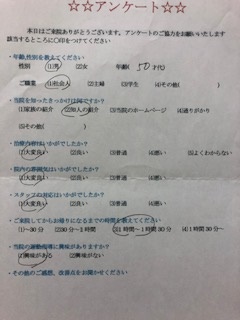 ☆☆アンケート☆☆
本日はご来院ありがとうございます。アンケートのご協力をお願いいたします
該当するところに〇印をつけてください
・年齢,性別を教えてください
性別 (1)男 (2)女 年齢( 50才代)
ご職業 (1)社会人 (2)主婦 (3)学生 (4)その他( )
・当院を知ったきっかけは何ですか?
(1)家族の紹介 (2)知人の紹介 (3)当院のホームページ (4)通りがかり
(5)その他( )
・治療内容はいかがでしたか?
(1)大変良い (2)良い (3)普通 (4)悪い (5)よくわからない
・院内の雰囲気はいかがでしたか?
(1)大変良い (2)良い (3)普通 (4)悪い
・スタッフの対応はいかがでしたか?
(1)大変良い (2)良い (3)普通 (4)悪い
・ご来院してからお帰りになるまでの時間を教えてください
(1)~30分 (2)30分~1時間 (3)1時間~1時間30分 (4)1時間30分~
・当院の運動指導に興味がありますか?
(1)興味がある (2)興味がない
・その他のご感想、改善点をお聞かせください